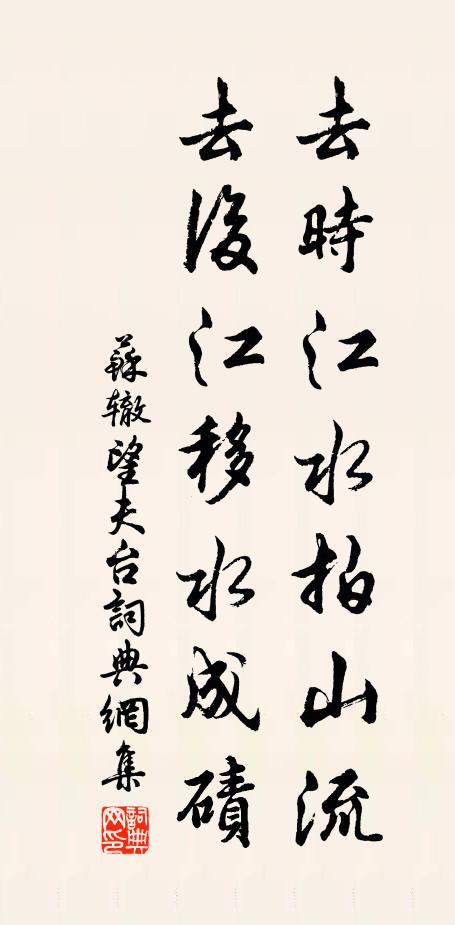 去時江水拍山流
去後江移水成磧
蘇辙望夫台詞典網集
詞典网印